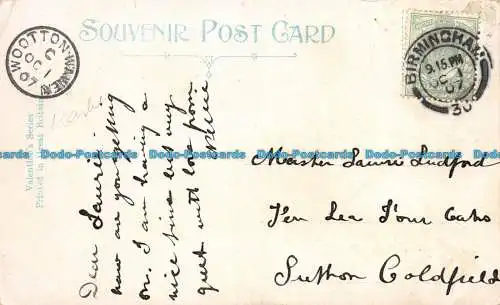 SOUVENIR POST CARD
WOOTTON-WAWEN
C
OC 1
07
BIRMINGHAM
9.15 PM
OC 1
07
Valentine's Series
Printed in Great Britain
Dear Laurie
how are you getting
on. I am having a
nice time
quet with love from
Master Laurie Ludford
Fen Lea Four Oaks
Sutton Coldfield
Dodo-Postcards Dodo-Postcards Dodo-Postcards Dodo-Postcards